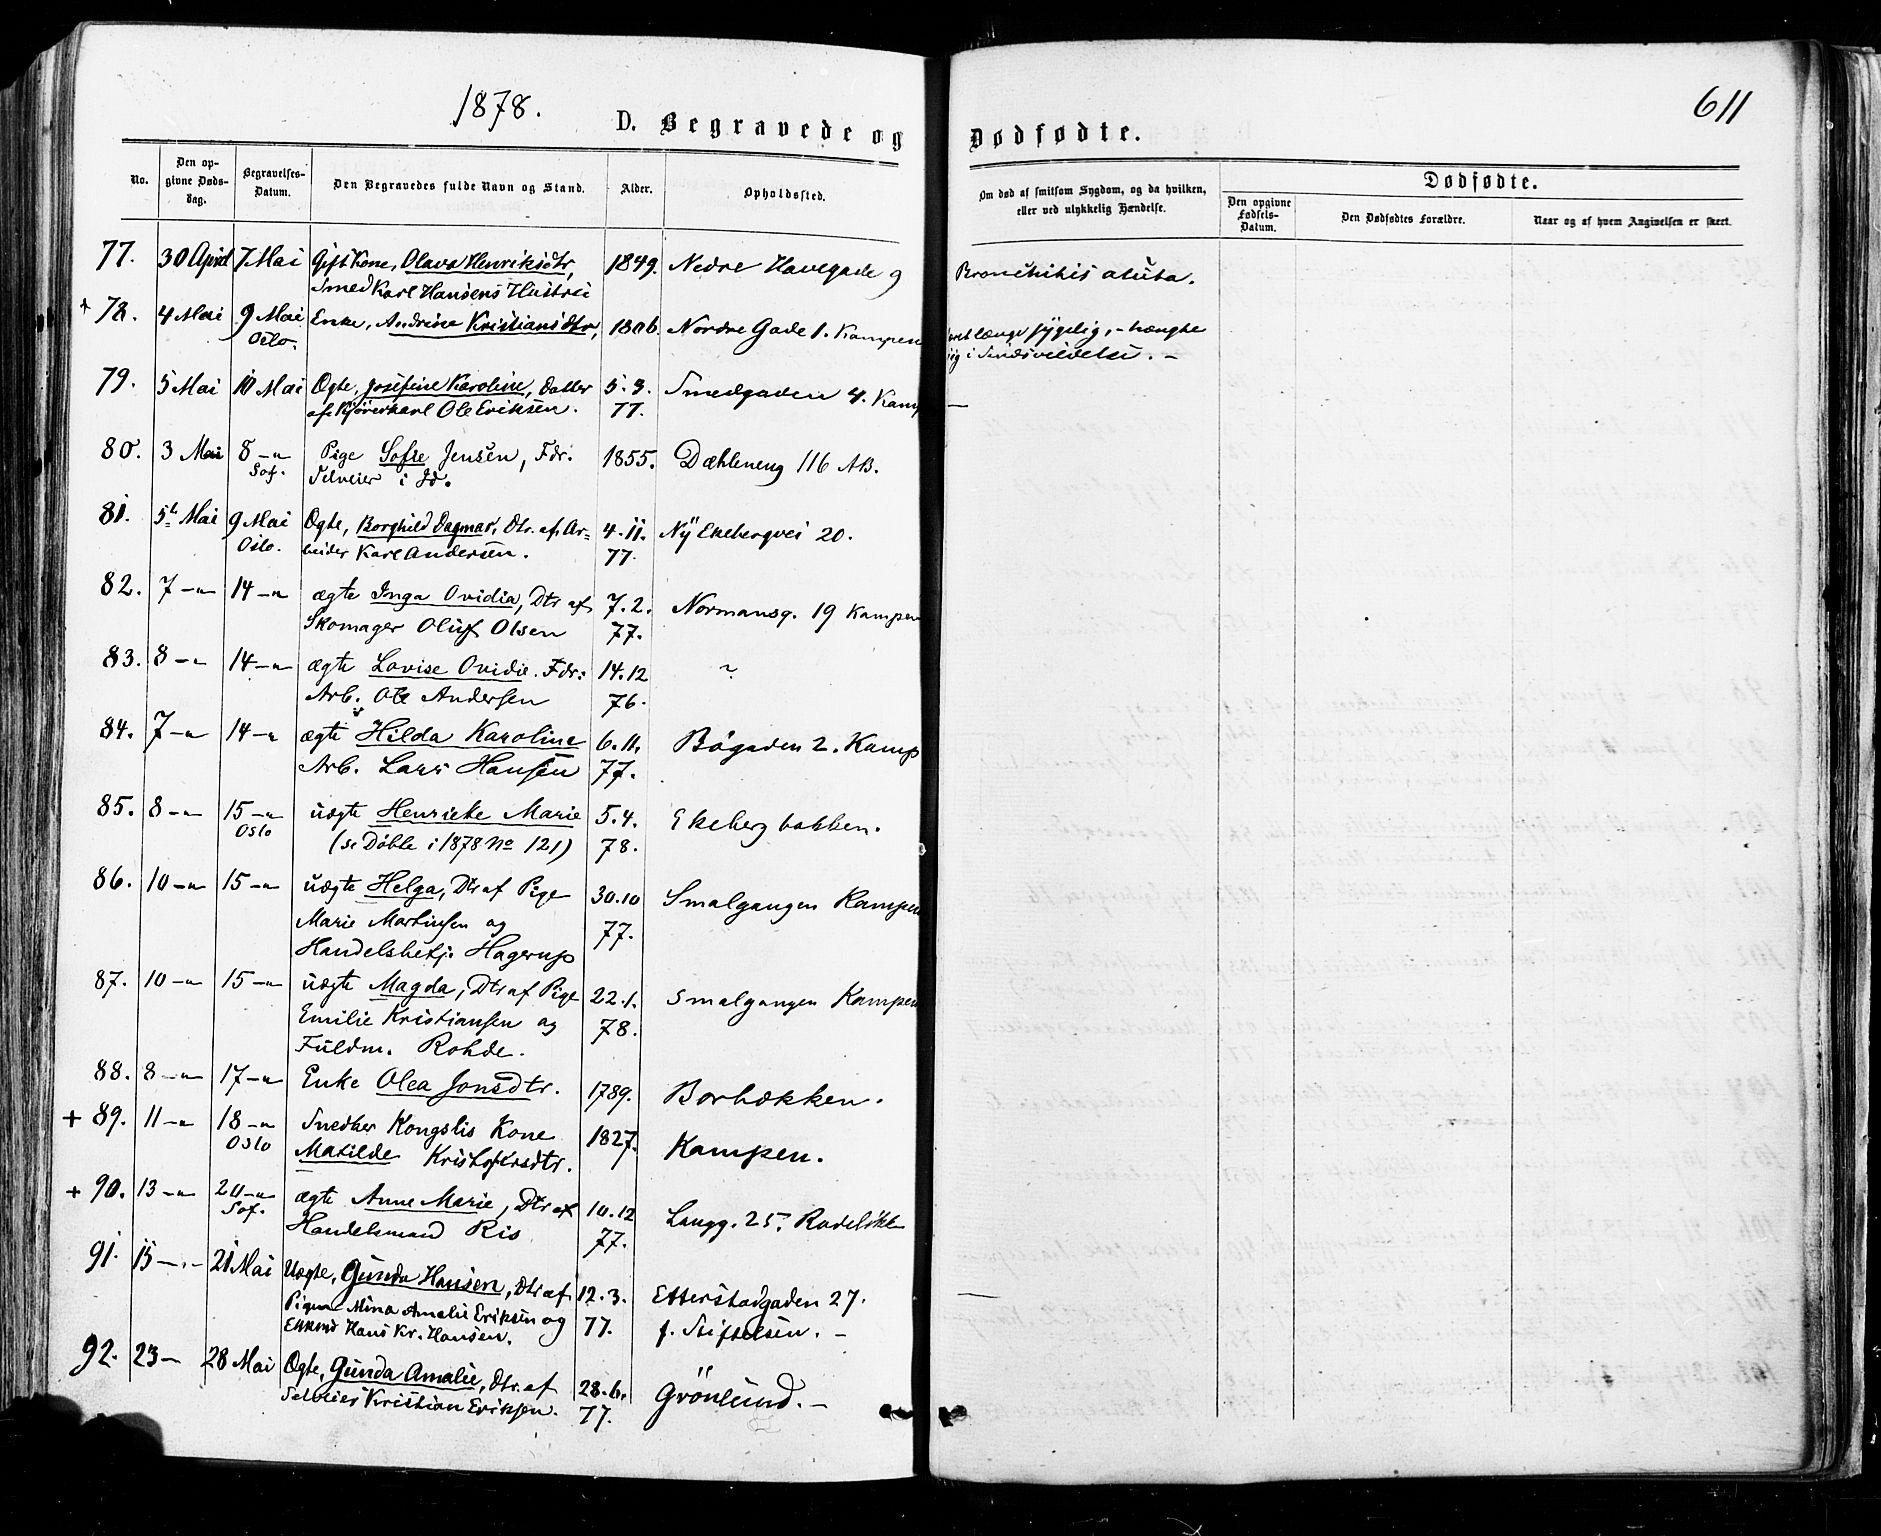 1878.
611
D. Begravede og Dødfødte.
No.
Den opgivne Døds-Dag.
Begravelses-Datum.
Den Begravedes fulde Navn og Stand.
Alder.
Opholdssted.
Om død af smitsom Sygdom, og da hvilken, eller ved ulykkelig Hændelse.
Dødfødte.
Den opgivne Fødsels-Datum.
Den Dødfødtes Forældre.
Naar og af hvem Angivelsen er skeet.
77. 30 April 7 Mai Gift Kone, Olava Henriksdtr, 1849. Nedre Havegade 9 Bronchitis acuta.
Smed Karl Hansens Hustru
78. 4 Mai 9 Mai Enke, Andrine Kristiansdtr, 1806. Nordre Gade 1. Kampen længe sygelig, - hængte
Oslo. sig i Sindsvildelse. -
79. 5 Mai 10 Mai Ægte, Josefine Karoline, Datter 5.3. Smedgaden 4. Kamp —
af Kjørerkarl Ole Eriksen. 77.
80. 3 Mai 8 -"- Pige Sofie Jensen, Fdr. 1855. Dæhleneng 116 AB.
Sof. Selveier i
81. 5 Mai 9 Mai Ægte, Borghild Dagmar, Dtr. af Ar= 4.11. Ny Ekebergvei 20.
Oslo. beider Karl Andersen. 77.
82. 7 -"- 14 -"- ægte Inga Ovidia, Dtr af 7.2. Normansg. 19 Kampen
Skomager Oluf Olsen 77.
83. 8 -"- 14 -"- ægte Lovise Ovidie. Fdr: 14.12 ~
Arb. Ole Andersen 76.
84. 7 -"- 14 -"- ægte Hilda Karoline 6.11. Bøgaden 2. Kamp
Arb. Lars Hansen 77.
85. 8 -"- 15 -"- uægte Henrieke Marie 5.4. Ekeberg bakken.
Oslo (se Døbte i 1878 No 121) 78.
86. 10 -"- 15 -"- uægte Helga, Dtr af Pige 30.10 Smalgangen Kampen
Marie Martinsen og 77.
Handelsbetj. Hagerup
87. 10 -"- 15 -"- uægte Magda, Dtr af Pige 22.1. Smalgangen Kampen
Emilie Kristiansen og 78.
Fuldm. Rohde.
88. 8 -"- 17 -"- Enke Olea Jonsdtr. 1789. Borbækken.
+ 89. 11 -"- 18 -"- Snedker Kongslis Kone 1827. Kampen.
Oslo Matilde Kristofersdtr.
+ 90. 13 -"- 20 -"- ægte Anne Marie, Dtr af 10.12 Langg. 25, Rodeløkk
Sof. Handelsmand Ris 77.
91. 15 -"- 21 Mai Uægte, Gunda Hansen, Dtr af 12.3. Etterstadgaden 27. —
Pigen Mina Amalie Eriksen og 77. f. Stiftelsen. -
Hans Kr. Hansen.
92. 23 - 28 Mai Ægte, Gunda Amalie, Dtr. af 28.6. Grönlund. -
Selveier Kristian Eriksen. 77.